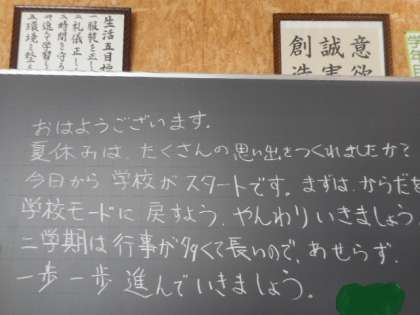 生活五目標
一 服装を正し
一 礼儀正し
一 時間を守る
一 進で学習
一 環境を整
意欲
誠実
創造
おはようございます。
夏休みは、たくさんの思い出をつくれましたか?
今日から学校がスタートです。まずは、からだを
学校モードに戻すよう、やんわりいきましょう。
二学期は行事が多くて長いので、あせらず、
一歩一歩進んでいきましょう。